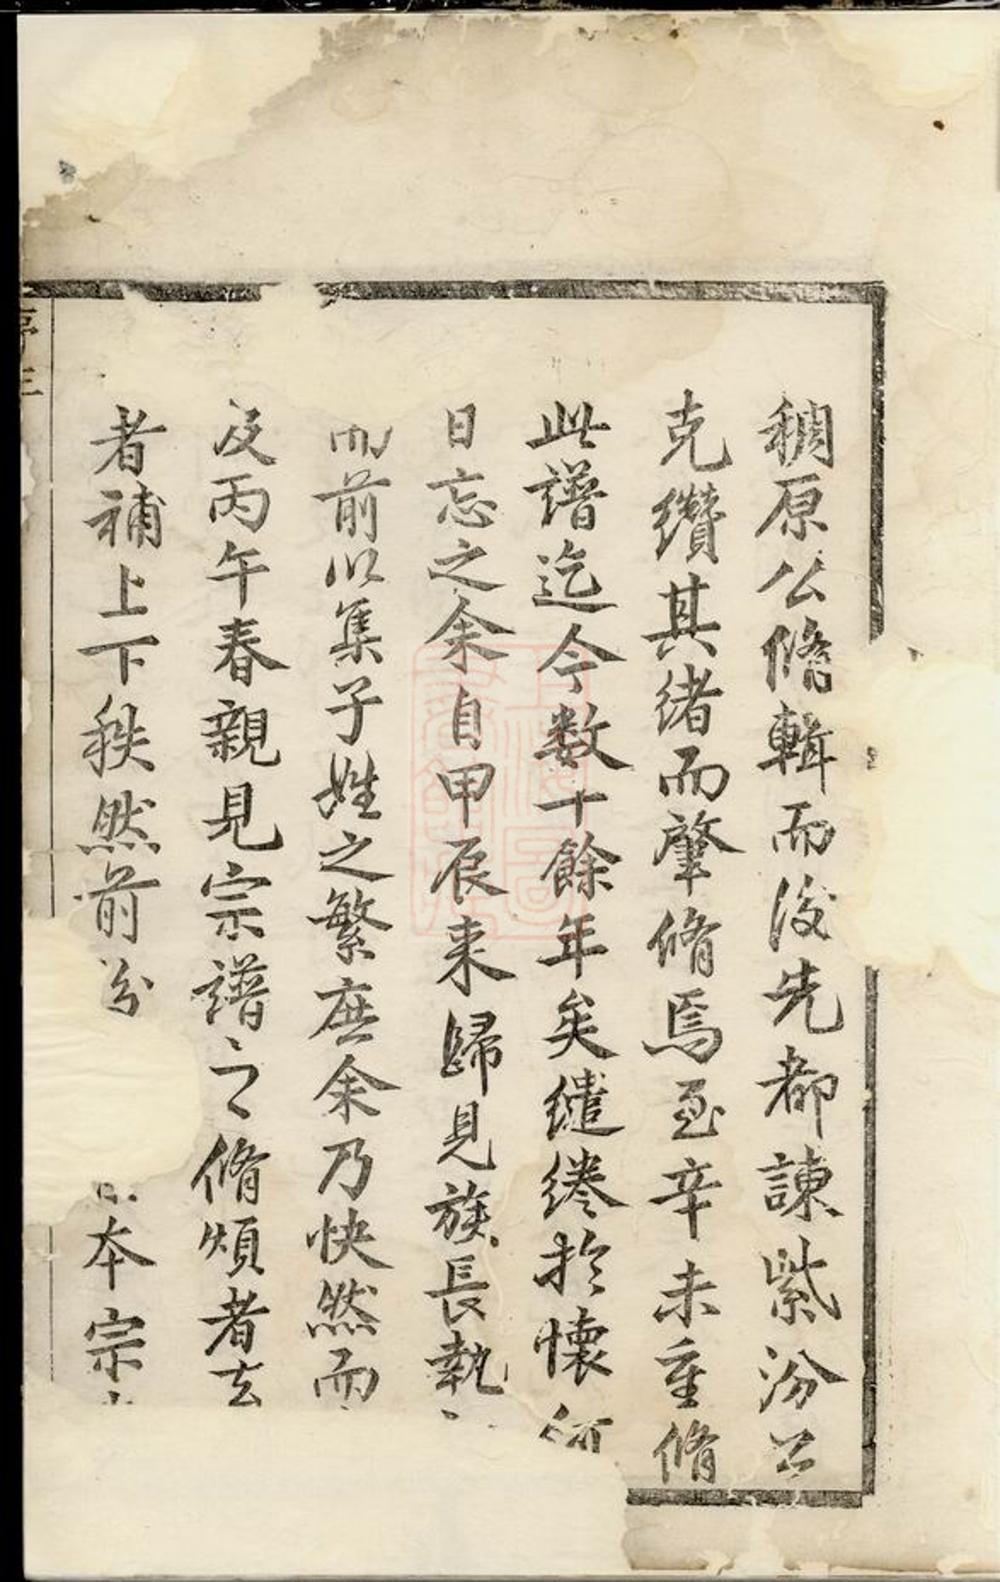 稠原公脩輯而後先都諫紫汾公
克纘其緒而肇脩焉至辛未重脩
此譜迄今數十餘年矣繾綣於懷何
日忘之余自甲辰来歸見族長執
而前以集子姓之繁庶余乃快然而
及丙午春親見宗譜之脩煩者玄
者補上下秩然前汾本宗